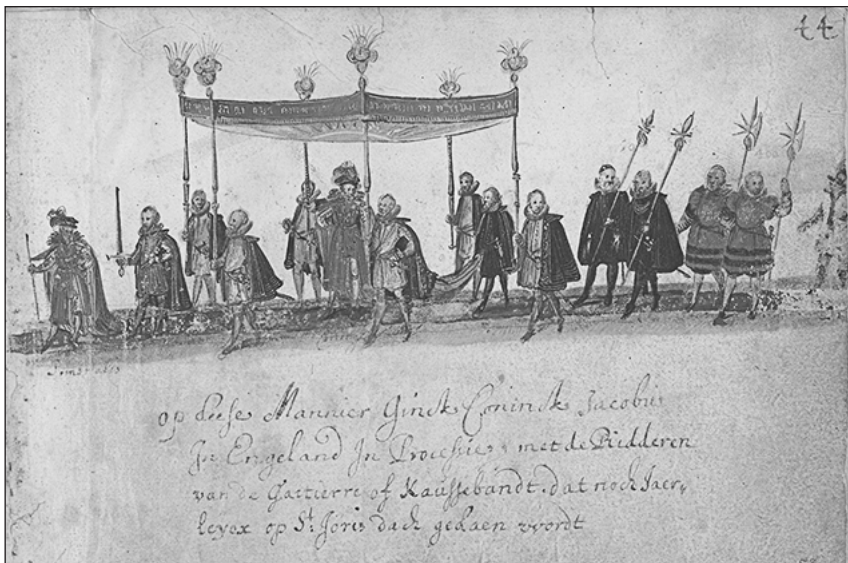 44
op deese Mannier Ginck Coninck Jacobus
In Engeland In Processie, met de Ridderen
van de Gartierre of Kaussebandt. dat noch Jaer„
leyex op St. Joris dach gedaen wordt